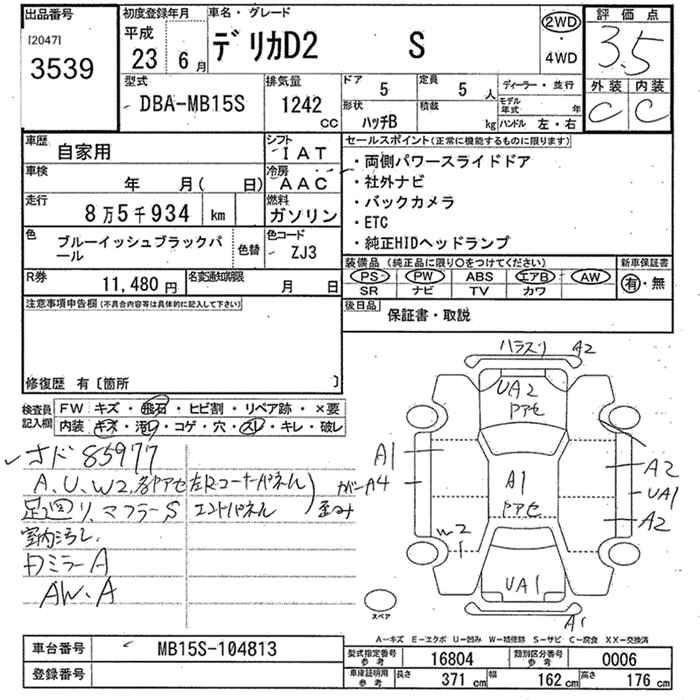 出品番号
[2047]
3539
初度登録年月
平成
23 6月
車名・グレード
デリカD2 S
2WD
4WD
評価点
3.5
外装 内装
C C
型式
DBA-MB15S
排気量
1242 CC
ドア 5
定員 5 人
ディーラー・並行
形状 ハッチB
積載 kg
モデル年式 年
ハンドル 左・右
車歴 自家用
シフト IAT
車検 年 月( 日)
冷房 AAC
走行 8万5千934 km
燃料 ガソリン
色 ブルーイッシュブラックパール
色替
色コード ZJ3
R券 11,480 円
名変通知期限 月 日
セールスポイント(正常に機能するものに限ります)
・両側パワースライドドア
・社外ナビ
・バックカメラ
・ETC
・純正HIDヘッドランプ
装備品(純正品に限り○をつけてください)
新車保証書
PS PW ABS エアB AW
SR ナビ TV カワ
有・無
後日品 保証書・取説
注意事項申告欄(不具合内容等は具体的に記入して下さい)
修復歴 有〔箇所 〕
検査員記入欄
FW キズ・飛石・ヒビ割・リペア跡・×要
内装 キズ・汚レ・コゲ・穴・スレ・キレ・破レ
85977
A、U、W2、
マフラーS
エンドパネル
室内汚レ
ミラーA
AW、A
A2
UA2
A1
A1
A4
A2
UA1
A2
W2
UA1
A1
スペア
A-キズ E-エクボ U-凹み W-補修跡 S-サビ C-腐食 XX-交換済
車台番号 MB15S-104813
登録番号
型式指定番号 参考 16804
類別区分番号 参考 0006
車庫証明用 参考 長さ 371 cm 幅 162 cm 高さ 176 cm